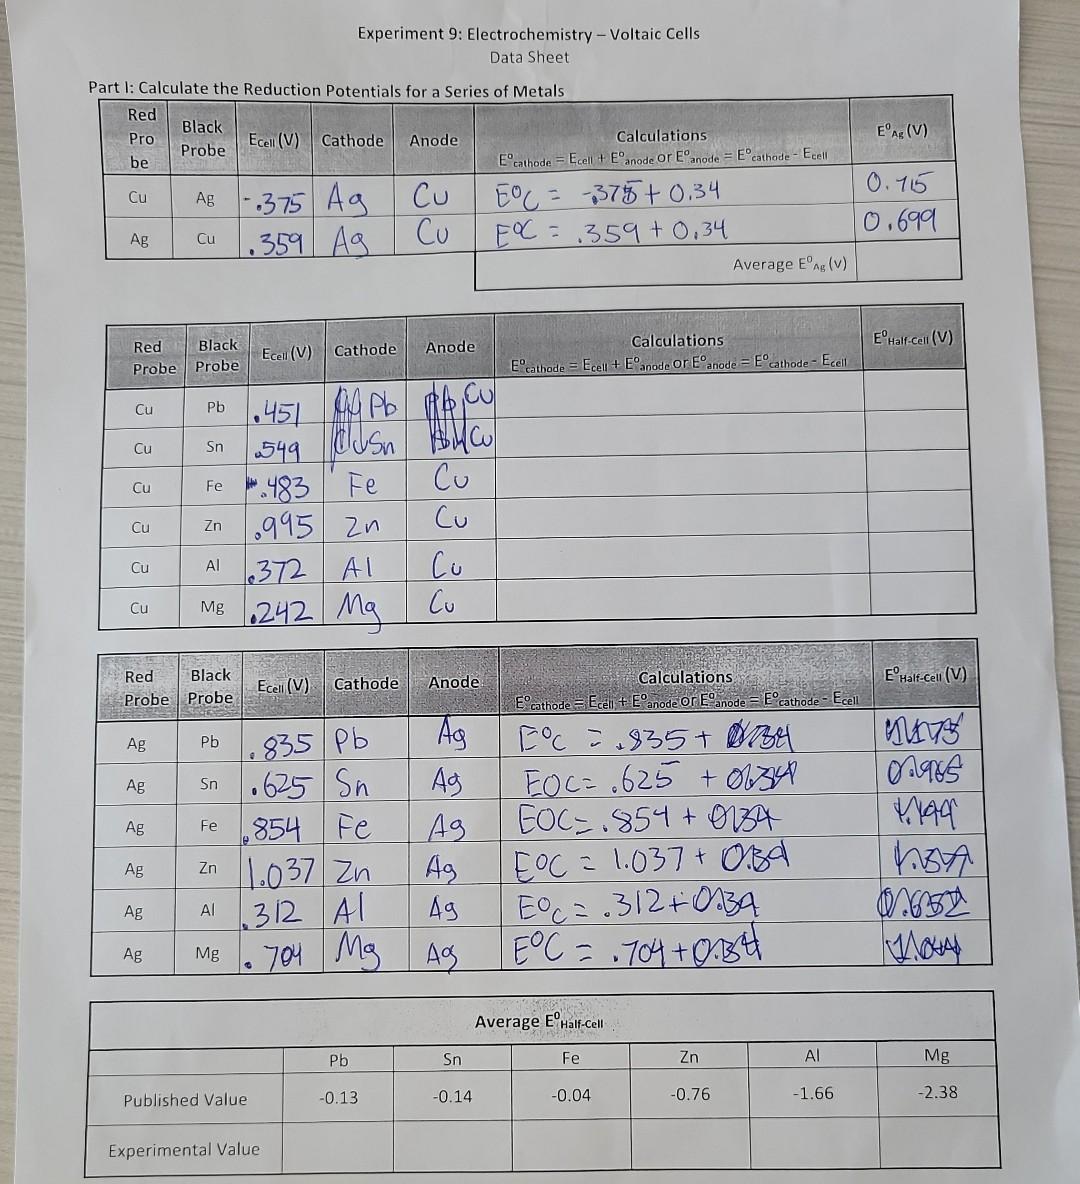 Experiment 9: Electrochemistry – Voltaic Cells
Data Sheet
Part I: Calculate the Reduction Potentials for a Series of Metals
Red Pro be Black Probe Ecell (V) Cathode Anode Calculations E⁰cathode = Ecell + E⁰anode or E⁰anode = E⁰cathode - Ecell E⁰Ag (V)
Cu Ag -.375 Ag Cu E⁰C = -.375 + 0.34 0.715
Ag Cu .359 Ag Cu E⁰C = .359 + 0.34 0.699
Average E⁰Ag (V)
Red Probe Black Probe Ecell (V) Cathode Anode Calculations E⁰cathode = Ecell + E⁰anode or E⁰anode = E⁰cathode - Ecell E⁰Half-Cell (V)
Cu Pb .451 Pb Cu
Cu Sn .549 Sn Cu
Cu Fe .483 Fe Cu
Cu Zn .995 Zn Cu
Cu Al .372 Al Cu
Cu Mg .242 Mg Cu
Red Probe Black Probe Ecell (V) Cathode Anode Calculations E⁰cathode = Ecell + E⁰anode or E⁰anode = E⁰cathode - Ecell E⁰Half-Cell (V)
Ag Pb .835 Pb Ag E⁰C = .835 +
Ag Sn .625 Sn Ag EOC = .625 +
Ag Fe .854 Fe Ag EOC = .854 +
Ag Zn 1.037 Zn Ag E⁰C = 1.037 +
Ag Al .312 Al Ag E⁰C = .312 +
Ag Mg .704 Mg Ag E⁰C = .704 +
Average E⁰Half-Cell
Pb Sn Fe Zn Al Mg
Published Value -0.13 -0.14 -0.04 -0.76 -1.66 -2.38
Experimental Value